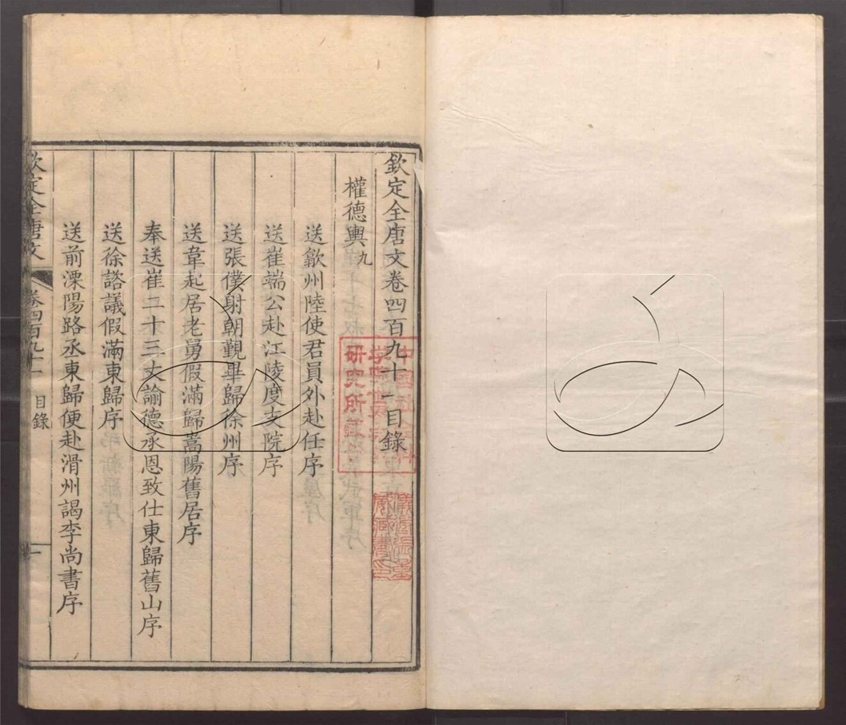 欽定全唐文卷四百九十一目錄
權德輿九
送歙州陸使君員外赴任序
送崔端公赴江陵度支院序
送張僕射朝覲畢歸徐州序
送韋起居老舅假滿歸嵩陽舊居序
奉送崔二十三丈諭德承恩致仕東歸舊山序
送徐諮議假滿東歸序
送前溧陽路丞東歸便赴滑州謁李尚書序
欽定全唐文 卷四百九十一 目錄 一